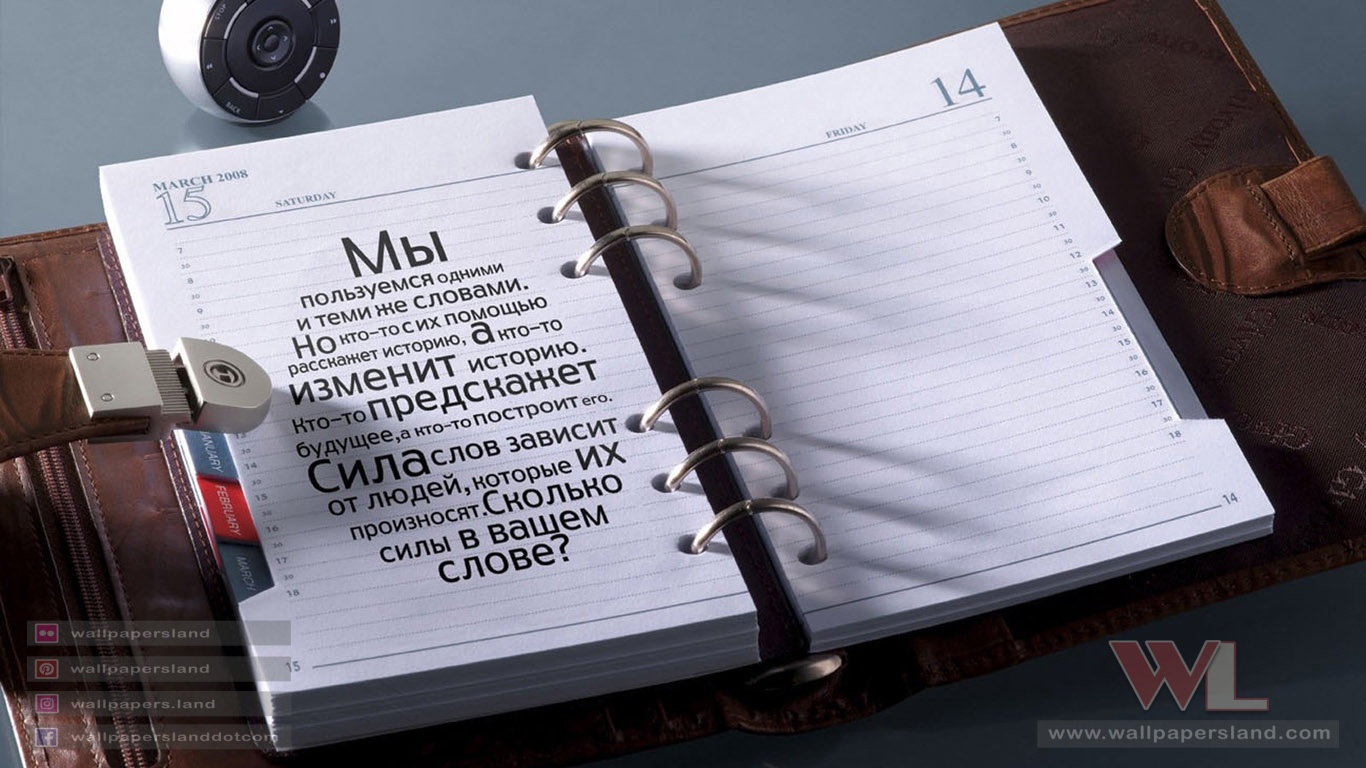 STOP
BACK
MARCH 2008
15
SATURDAY
7
30
8
30
9
30
Мы
пользуемся одними
и теми же словами.
Но кто-то с их помощью
расскажет историю, а кто-то
изменит историю.
Кто-то предскажет
будущее, а кто-то построит его.
Сила слов зависит
от людей, которые их
произносят. Сколько
силы в вашем
слове?
13
14
30
15
30
16
30
17
30
18
15
JANUARY
FEBRUARY
MARCH
14
FRIDAY
7
30
8
30
9
30
10
30
11
30
12
30
13
30
14
30
15
30
16
30
17
30
18
14
wallpapersland
wallpapersland
wallpapers.land
wallpaperslanddotcom
WL
www.wallpapersland.com